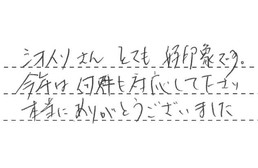 さん とても 好印象です。
今年は 何件も対応して下さり
本当にありがとうございました